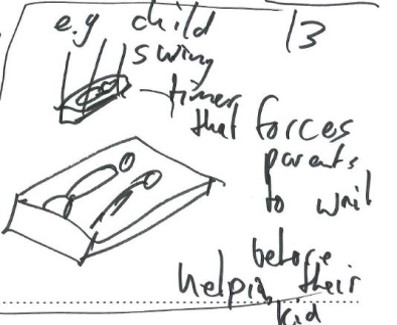 e.g child 13
swing
timer
that forces
parents
to wait
before
helping their
kid